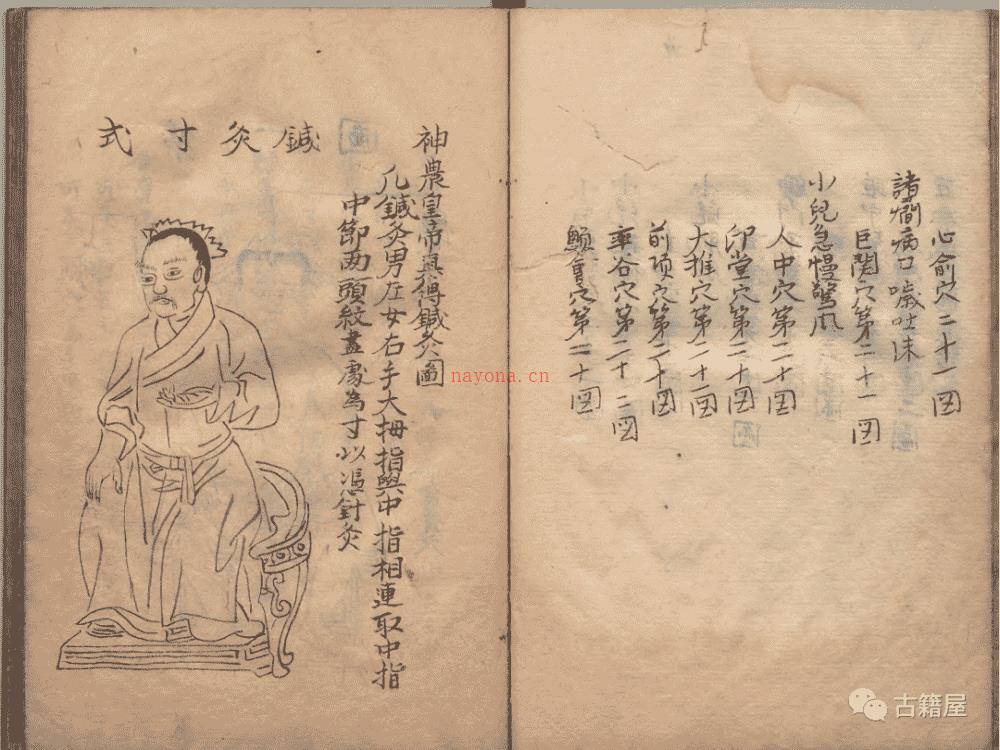 心俞穴二十一図
諸癇病口喎吐沫
巨闕穴第二十一図
小兒急慢驚風
人中穴第二十図
印堂穴第二十図
大推穴第二十一図
前項穴第二十図
率谷穴第二十二図
顖會穴第二十図
神農皇帝真傳鍼灸圖
凡鍼灸男左女右手大拇指與中指相連取中指
中節两頭紋盡處為寸以憑針灸
鍼灸寸式
nayona.cn
古籍屋